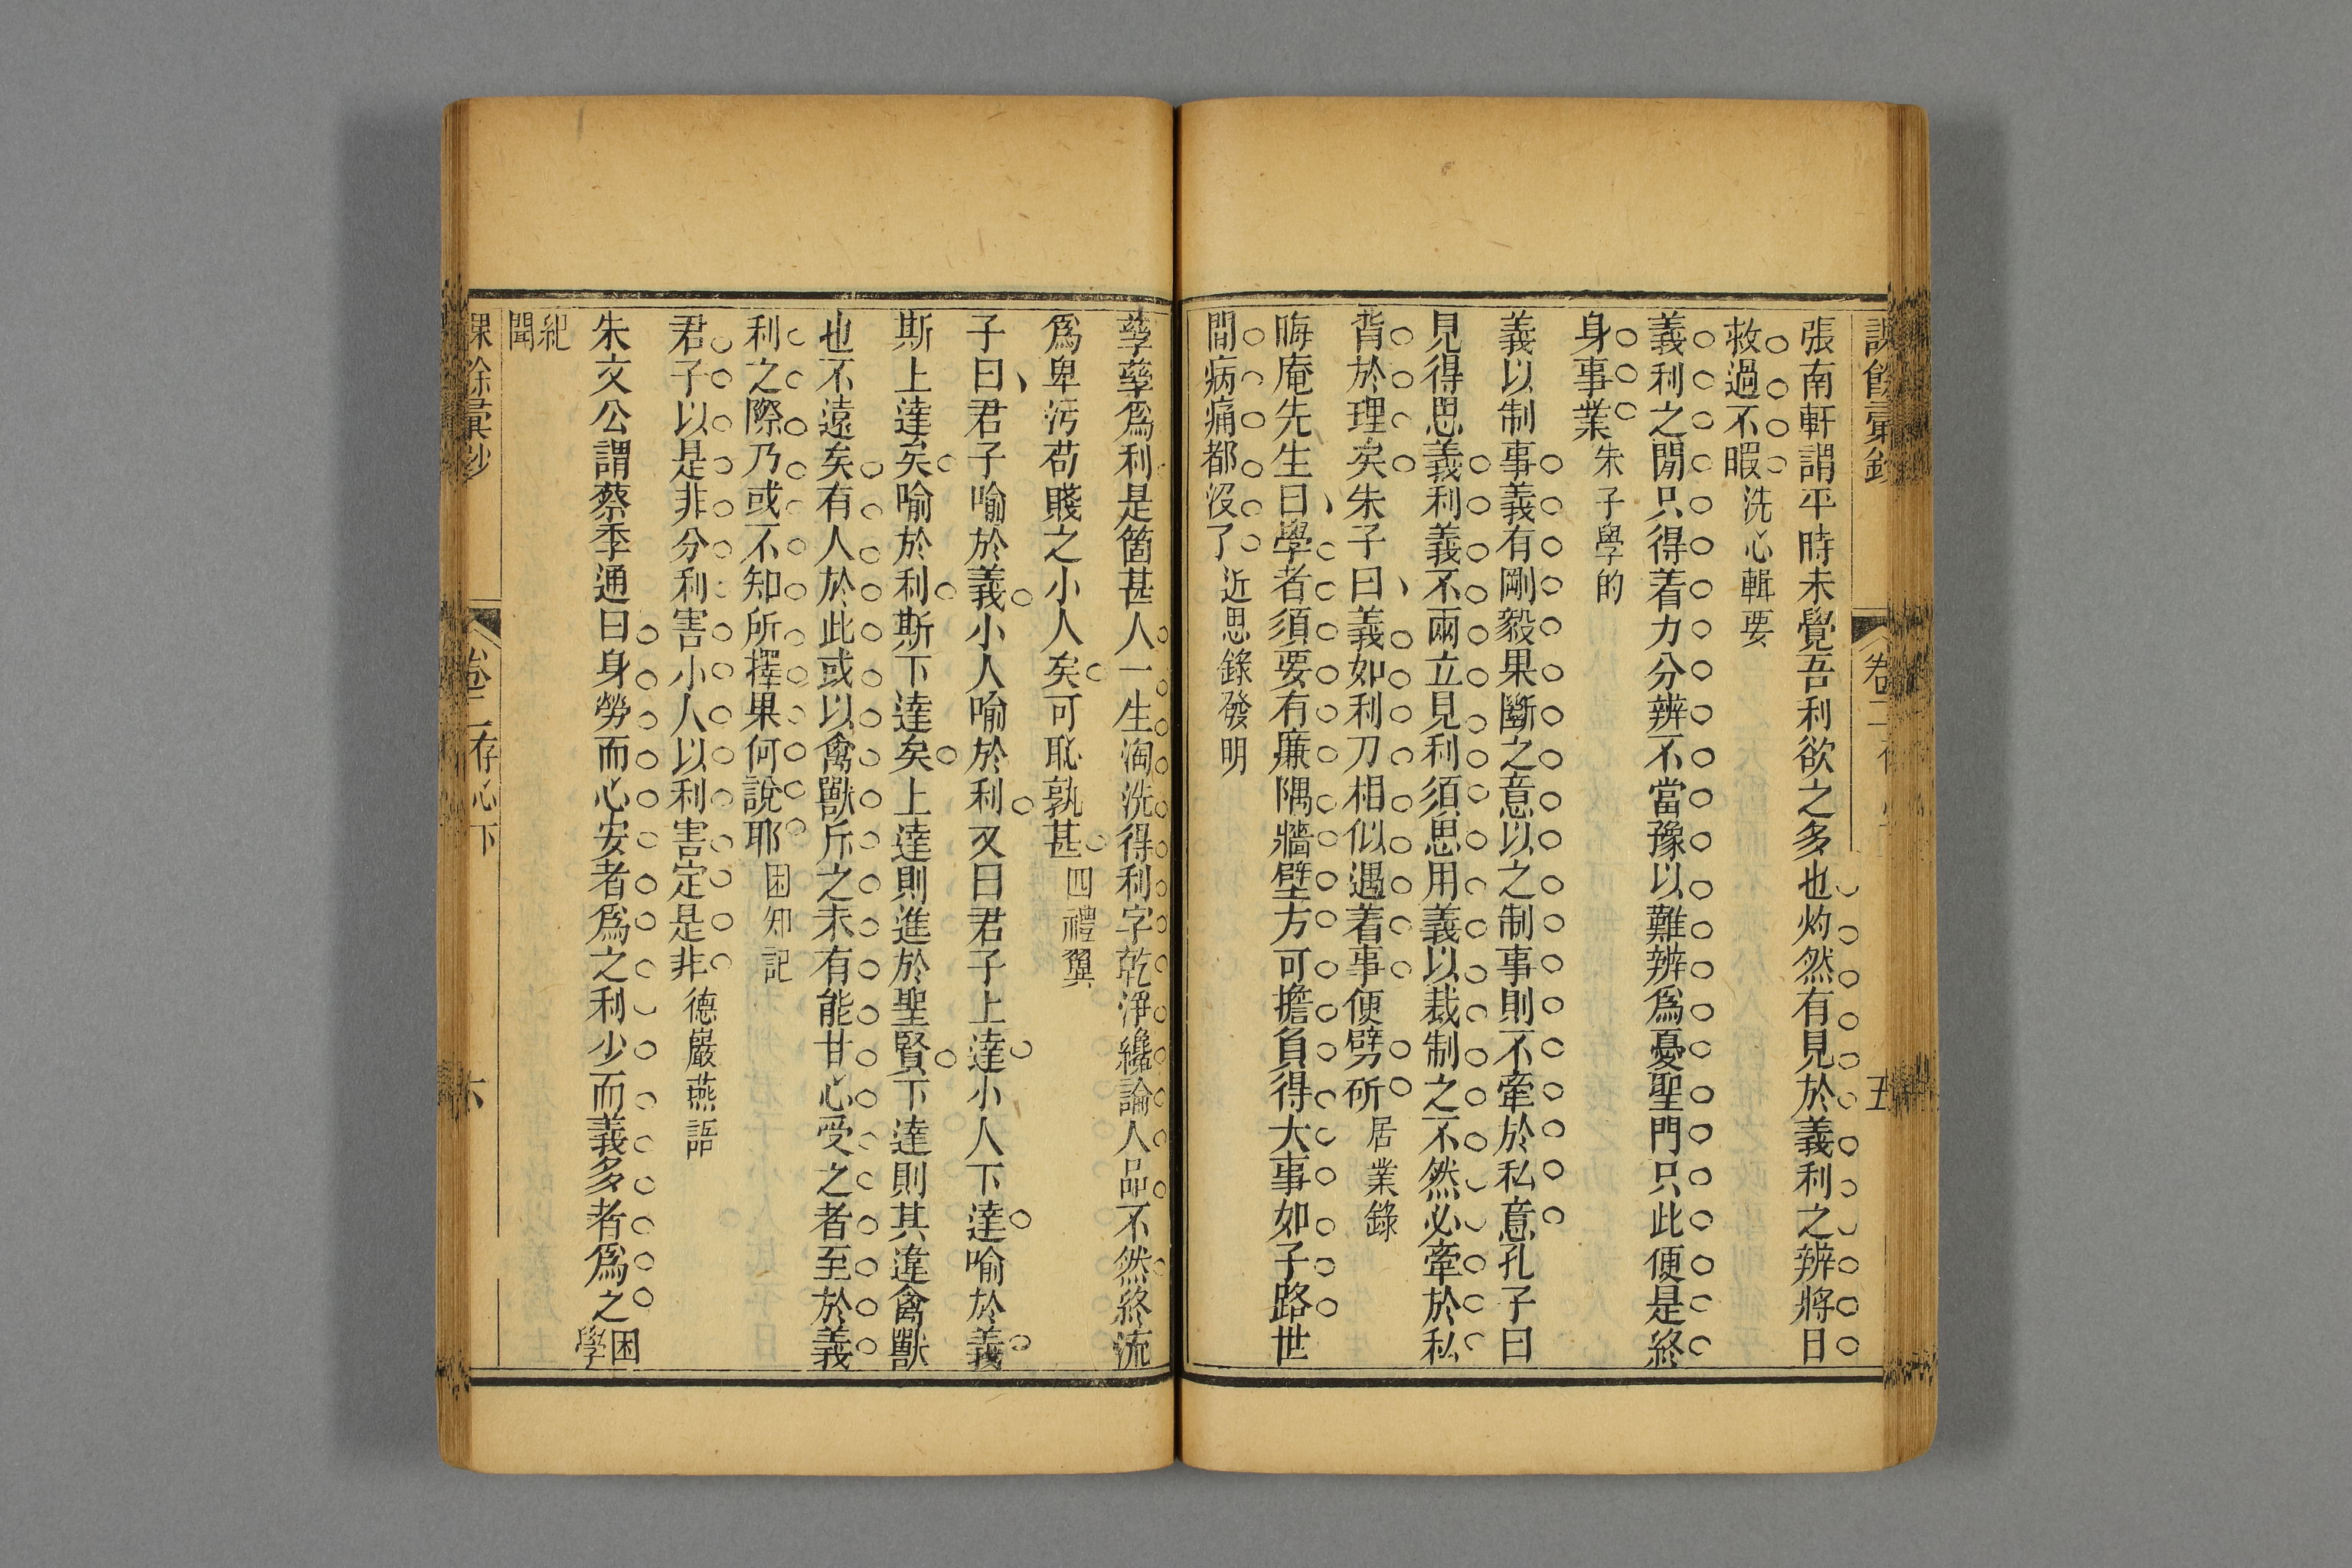 課餘彙鈔 卷二 存心下 五
張南軒謂平時未覺吾利欲之多也灼然有見於義利之辨將日
救過不暇洗心輯要
義利之閒只得着力分辨不當豫以難辨爲憂聖門只此便是終
身事業朱子學的
義以制事義有剛毅果斷之意以之制事則不牽於私意孔子曰
見得思義利義不兩立見利須思用義以裁制之不然必牽於私
背於理矣朱子曰義如利刀相似遇着事便劈斫居業錄
晦庵先生曰學者須要有廉隅牆壁方可擔負得大事如子路世
間病痛都沒了近思錄發明
孳孳爲利是箇甚人一生淘洗得利字乾淨纔論人品不然終流
爲卑污苟賤之小人矣可恥孰甚四禮翼
子曰君子喻於義小人喻於利又曰君子上達小人下達喻於義
斯上達矣喻於利斯下達矣上達則進於聖賢下達則其違禽獸
也不遠矣有人於此或以禽獸斥之未有能甘心受之者至於義
利之際乃或不知所擇果何說耶困知記
君子以是非分利害小人以利害定是非德巖燕語
朱文公謂蔡季通曰身勞而心安者爲之利少而義多者爲之困學
紀聞
課餘彙鈔 卷二 存心下 六